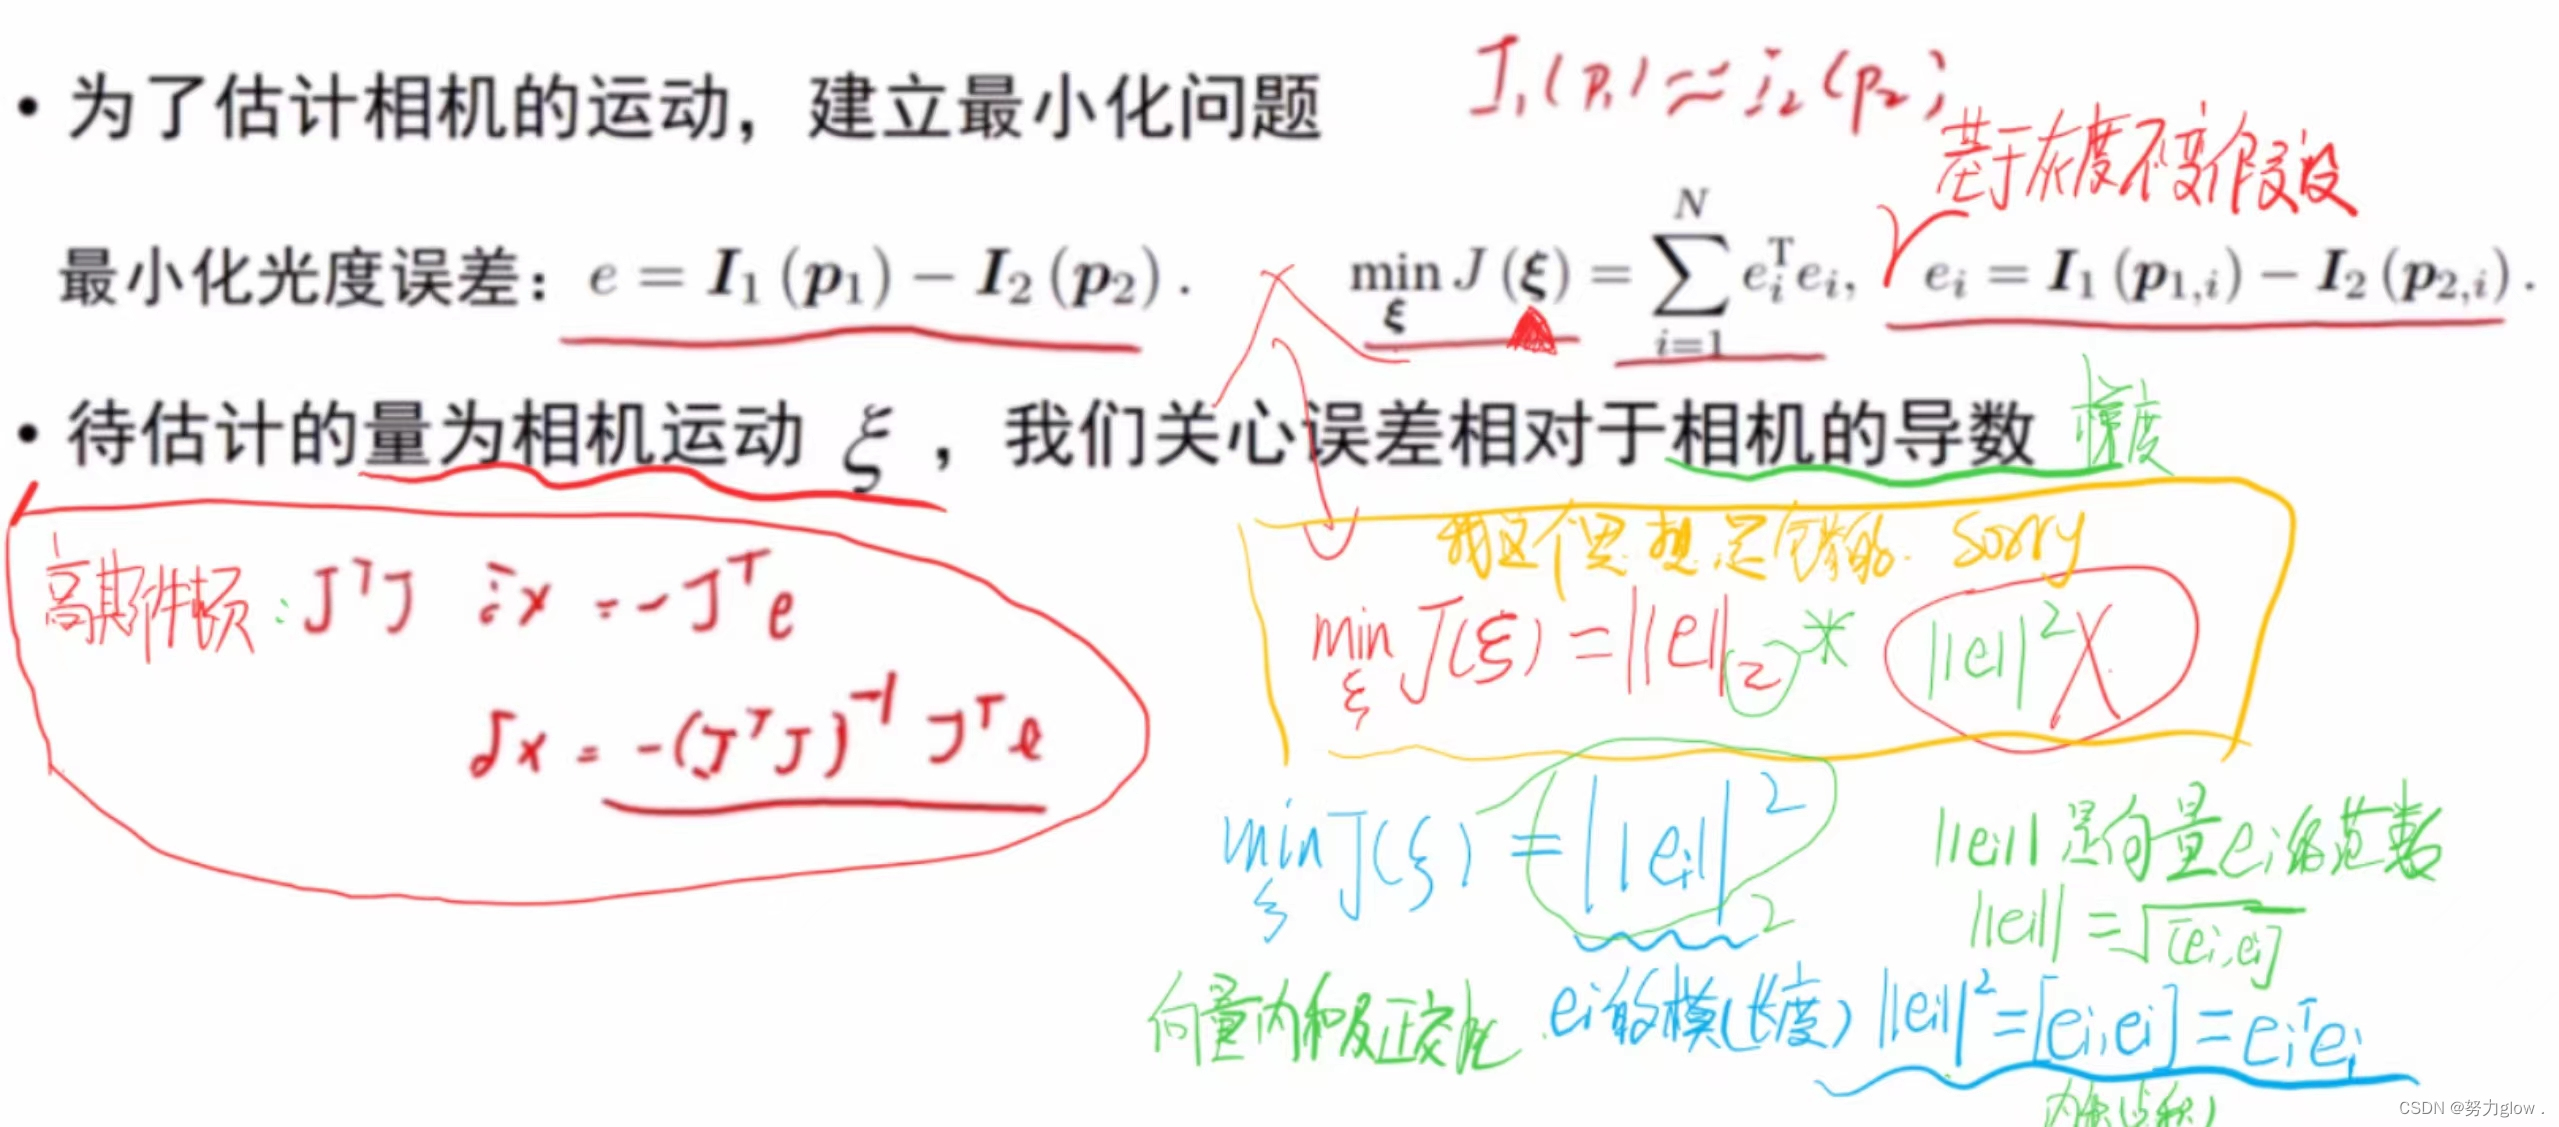 I₁(p₁)≈i₂(p₂)
• 为了估计相机的运动，建立最小化问题
基于灰度不变假设
最小化光度误差：e = I₁(p₁) − I₂(p₂). min_ξ J(ξ) = ∑_{i=1}^{N} eᵢᵀeᵢ, eᵢ = I₁(p₁,ᵢ) − I₂(p₂,ᵢ).
• 待估计的量为相机运动 ξ ，我们关心误差相对于相机的导数 梯度
高斯牛顿: JᵀJ δx = -Jᵀe
δx = -(JᵀJ)⁻¹ Jᵀe
我这个思想是错的. Sorry
min_ξ J(ξ) = ||e||₂ * ||e||² X
min_ξ J(ξ) = ||ei||²₂
||ei|| 是向量ei的范数
||ei|| = √[ei,ei]
向量内积及正交化 ei的模(长度) ||ei||² = [ei,ei] = eiᵀei
CSDN @努力glow .